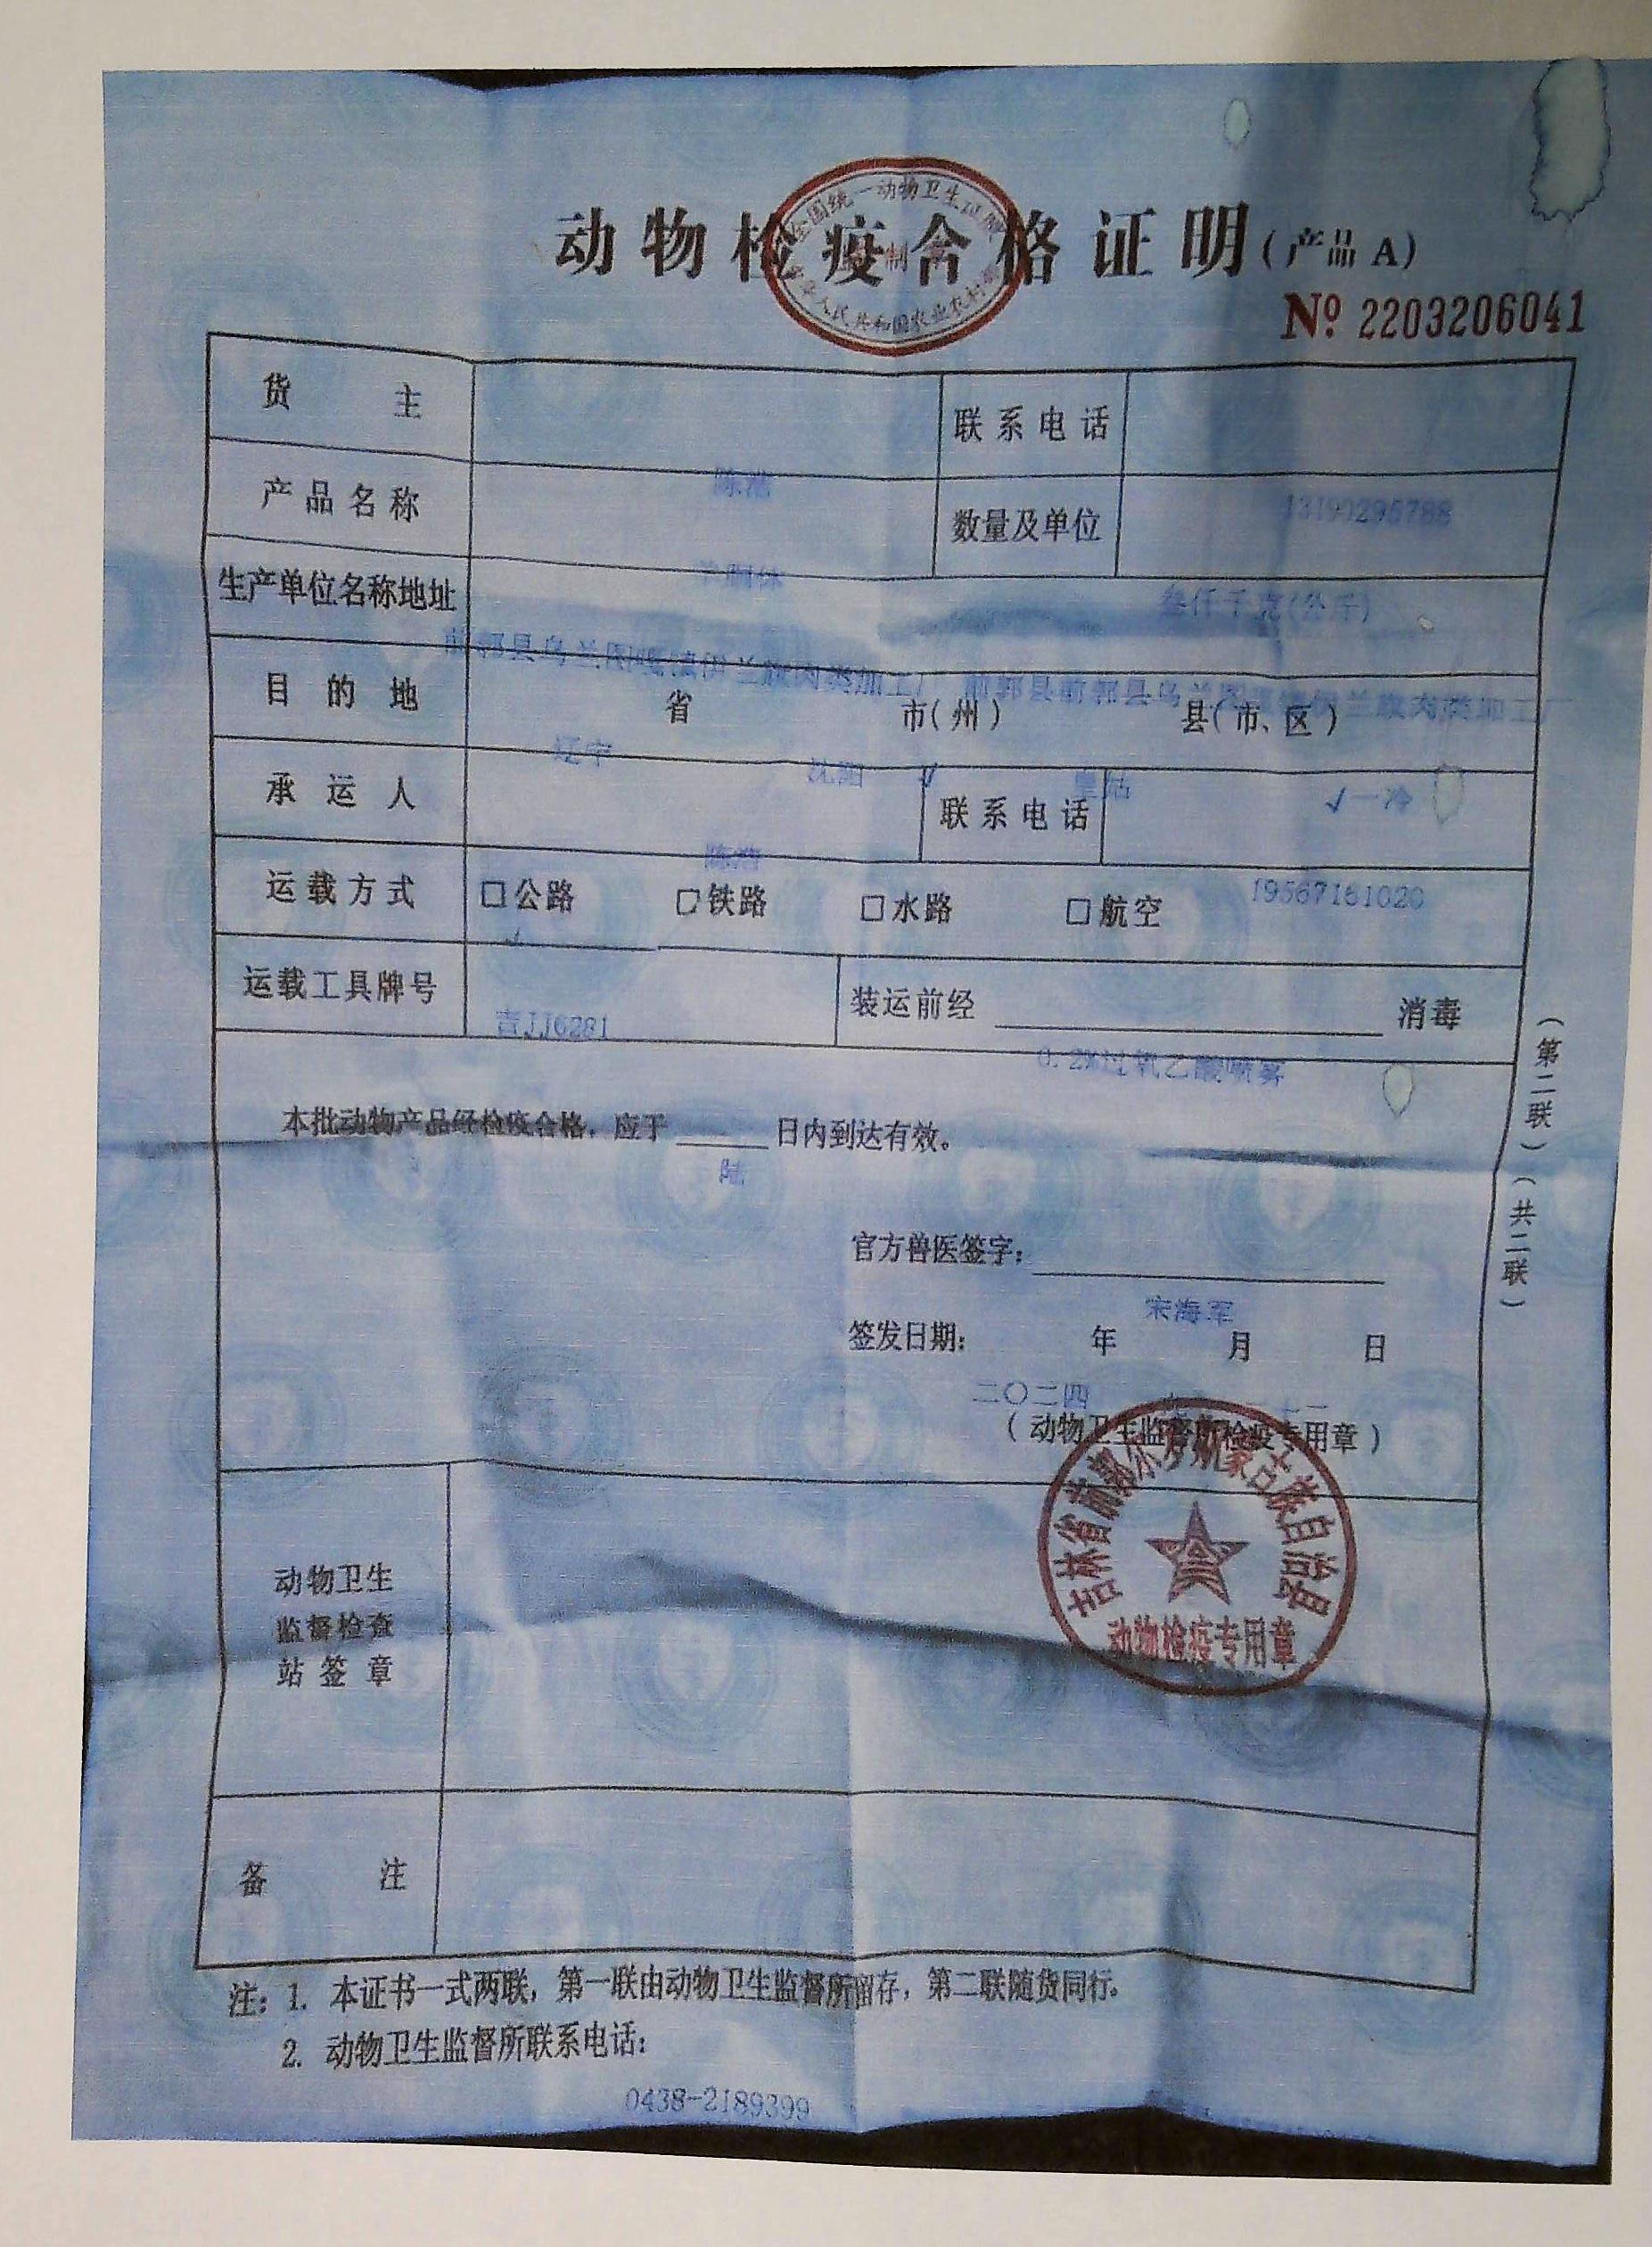 动物检疫合格证明(产品 A)
全国统一动物卫生证章
中华人民共和国农业农村部
№ 2203206041
货主 联系电话
陈浩 13190295788
产品名称 数量及单位
羊胴体 叁仟千克(公斤)
生产单位名称地址
前郭县乌兰图嘎镇伊兰族肉类加工厂 前郭县前郭县乌兰图嘎镇伊兰族肉类加工厂
目的地 省 市(州) 县(市、区)
辽宁 沈阳 √ 皇姑 √一冷
承运人 联系电话
陈浩 19567161020
运载方式 □公路 □铁路 □水路 □航空
√
运载工具牌号 装运前经 消毒
吉JJ6281 0.2%过氧乙酸喷雾
本批动物产品经检疫合格，应于 日内到达有效。
陆
(第二联)(共二联)
官方兽医签字：
宋海军
签发日期： 年 月 日
二〇二四
(动物卫生监督所检疫专用章)
吉林省前郭尔罗斯蒙古族自治县
动物检疫专用章
动物卫生
监督检查
站签章
备注
注：1. 本证书一式两联，第一联由动物卫生监督所留存，第二联随货同行。
2. 动物卫生监督所联系电话：
0438-2189399